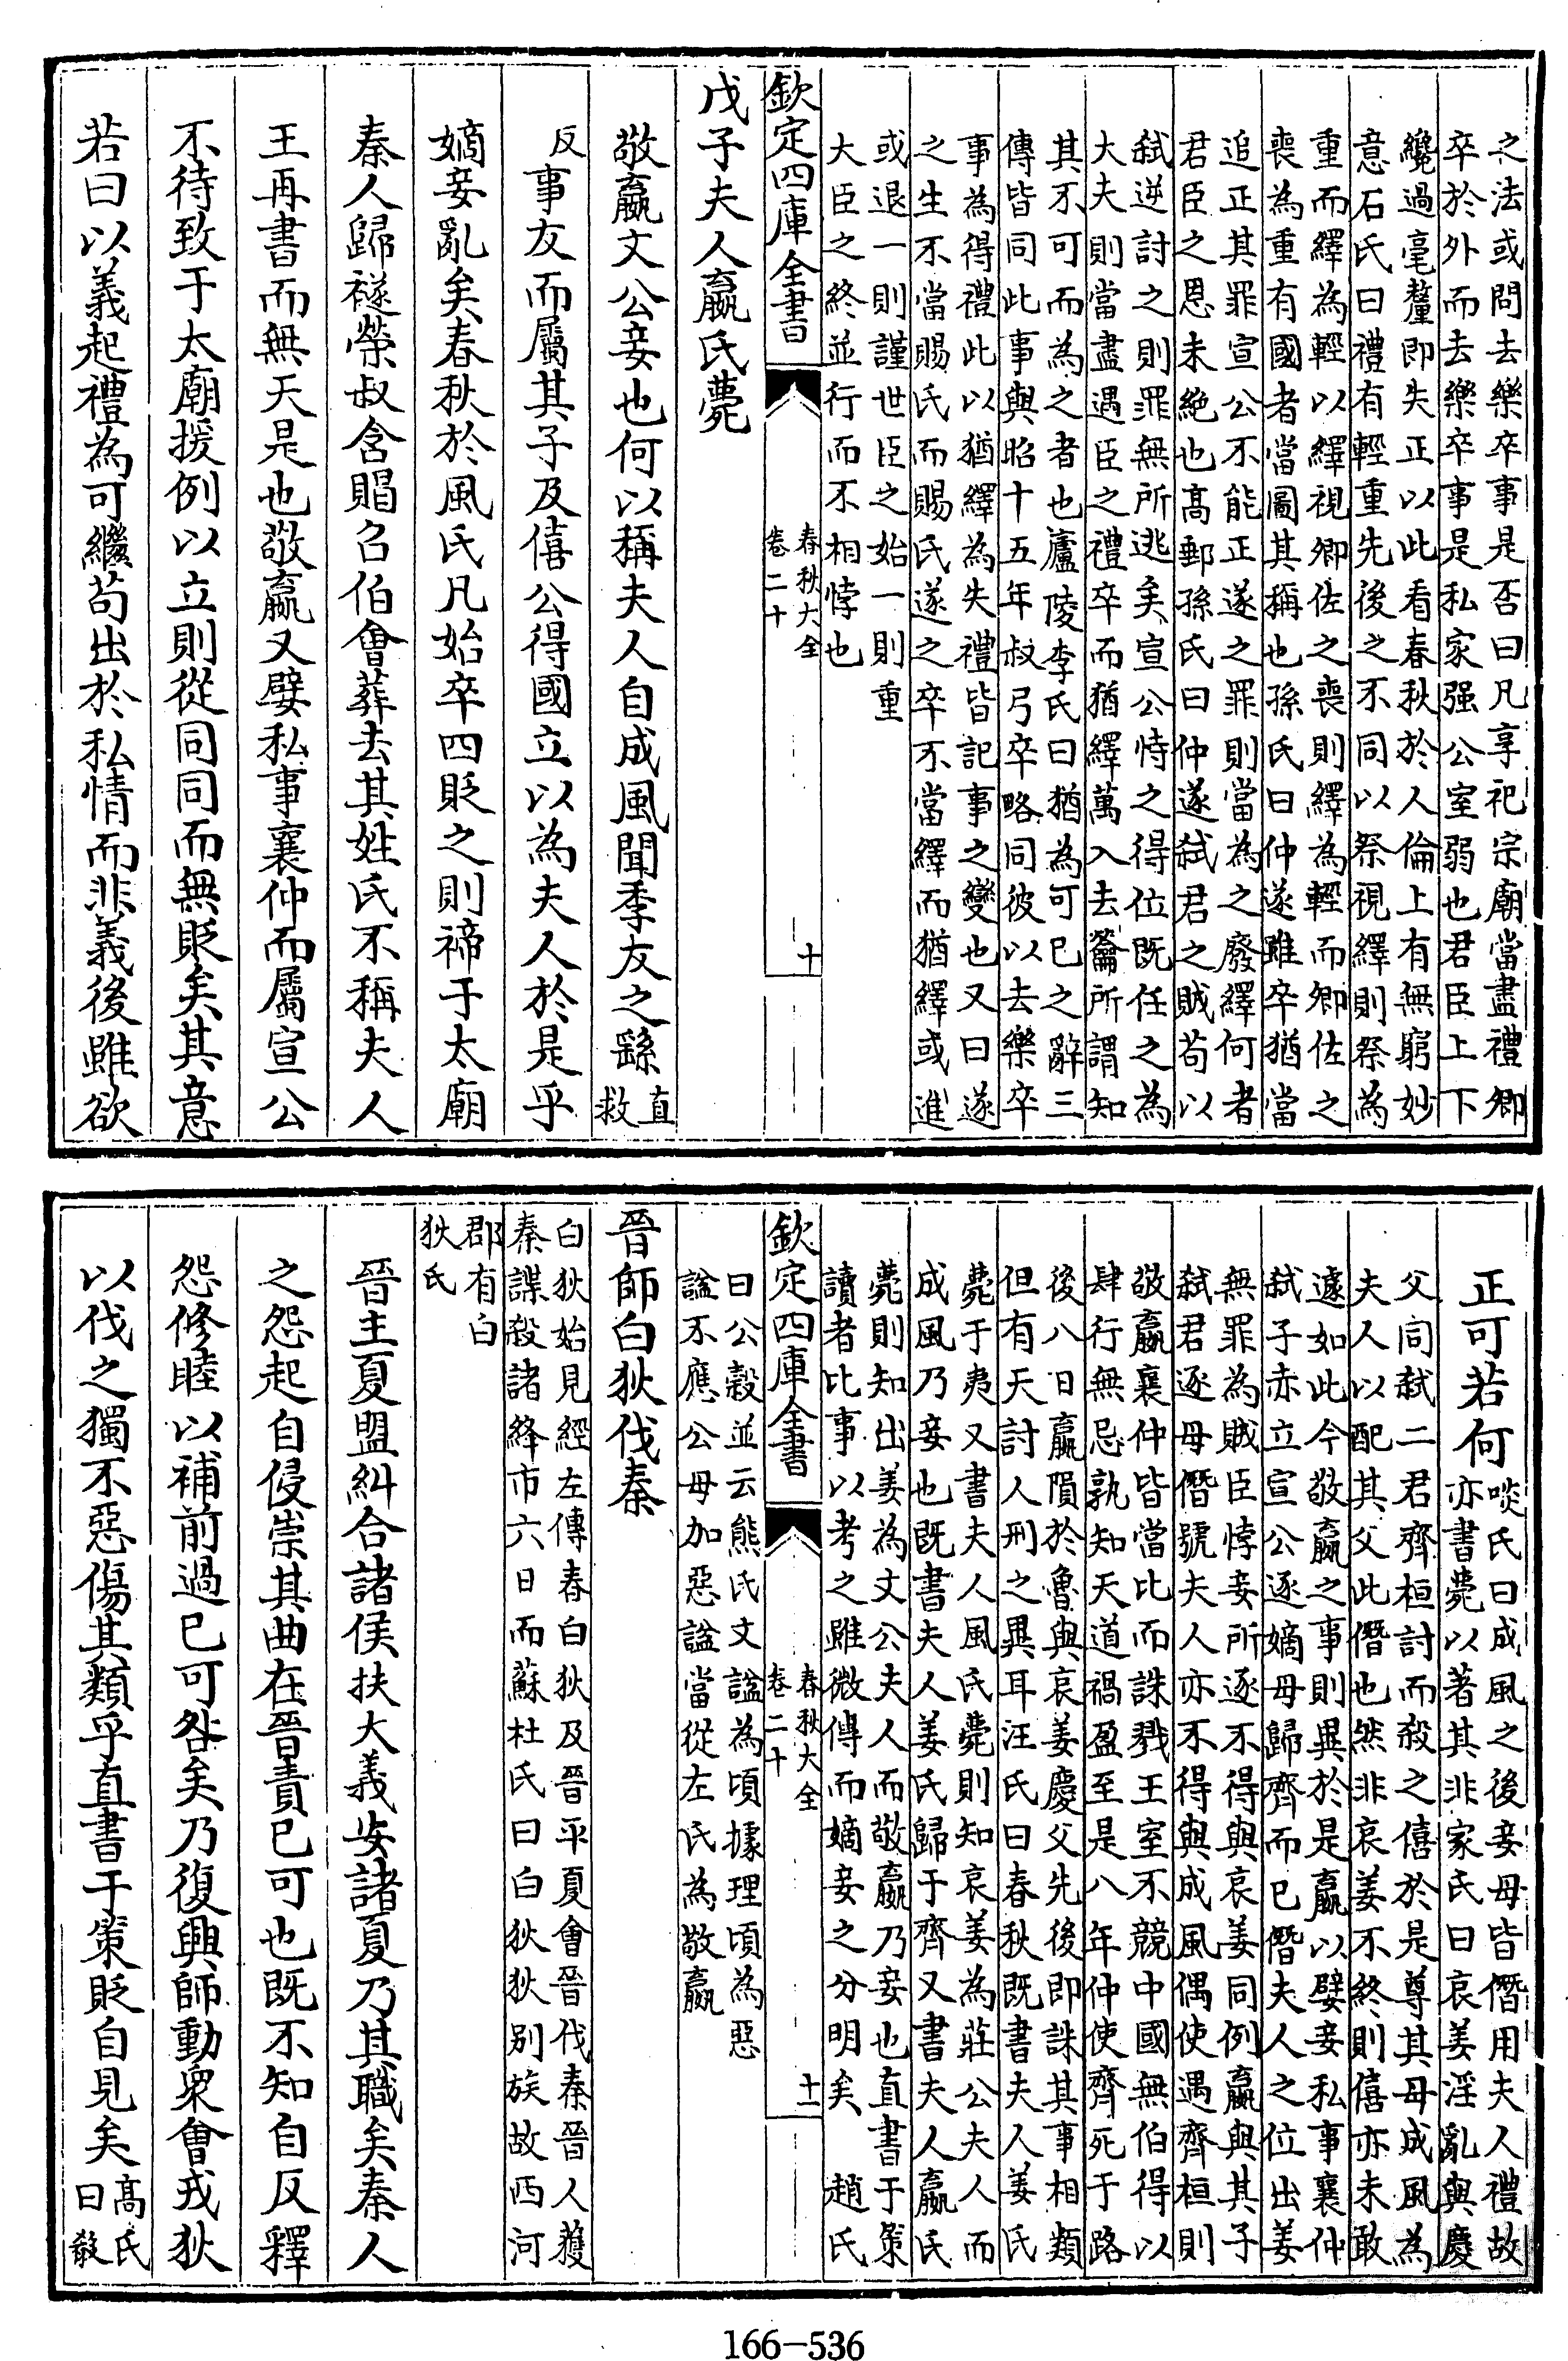 之法或問去樂卒事是否曰凡享祀宗廟當盡禮卿
卒於外而去樂卒事是私家强公室弱也君臣上下
纔過毫釐即失正以此看春秋於人倫上有無窮妙
意石氏曰禮有輕重先後之不同以祭視繹則祭為
重而繹為輕以繹視卿佐之喪則繹為輕而卿佐之
喪為重有國者當圖其稱也孫氏曰仲遂雖卒猶當
追正其罪宣公不能正遂之罪則當為之廢繹何者
君臣之恩未絶也高郵孫氏曰仲遂弑君之賊茍以
弑逆討之則罪無所逃矣宣公恃之得位既任之為
大夫則當盡遇臣之禮卒而猶繹萬入去籥所謂知
其不可而為之者也廬陵李氏曰猶為可已之辭三
傳皆同此事與昭十五年叔弓卒略同彼以去樂卒
事為得禮此以猶繹為失禮皆記事之變也又曰遂
之生不當賜氏而賜氏遂之卒不當繹而猶繹或進
或退一則謹世臣之始一則重
大臣之終並行而不相悖也
欽定四庫全書
春秋大全
卷二十
十
戊子夫人嬴氏薨
敬嬴文公妾也何以稱夫人自成風聞季友之繇
直
救
反
事友而屬其子及僖公得國立以為夫人於是乎
嫡妾亂矣春秋於風氏凡始卒四貶之則禘于太廟
秦人歸襚榮叔含賵召伯會葬去其姓氏不稱夫人
王再書而無天是也敬嬴又嬖私事襄仲而屬宣公
不待致于太廟援例以立則從同同而無貶矣其意
若曰以義起禮為可繼茍出於私情而非義後雖欲
正可若何
啖氏曰成風之後妾母皆僭用夫人禮故
亦書薨以著其非家氏曰哀姜淫亂與慶
父同弑二君齊桓討而殺之僖於是尊其母成風為
夫人以配其父此僭也然非哀姜不終則僖亦未敢
遽如此今敬嬴之事則異於是嬴以嬖妾私事襄仲
弑子赤立宣公逐嫡母歸齊而已僭夫人之位出姜
無罪為賊臣悖妾所逐不得與哀姜同例嬴與其子
弑君逐母僭號夫人亦不得與成風偶使遇齊桓則
敬嬴襄仲皆當比而誅戮王室不競中國無伯得以
肆行無忌孰知天道禍盈至是八年仲使齊死于路
後八日嬴隕於魯與哀姜慶父先後即誅其事相類
但有天討人刑之異耳汪氏曰春秋既書夫人姜氏
薨于夷又書夫人風氏薨則知哀姜為莊公夫人而
成風乃妾也既書夫人姜氏歸于齊又書夫人嬴氏
薨則知出姜為文公夫人而敬嬴乃妾也直書于策
讀者比事以考之雖微傳而嫡妾之分明矣　趙氏
欽定四庫全書
春秋大全
卷二十
十一
曰公穀並云熊氏文諡為頃據理頃為惡
諡不應公母加惡諡當從左氏為敬嬴
晉師白狄伐秦
白狄始見經左傳春白狄及晉平夏會晉伐秦晉人獲
秦諜殺諸絳市六日而蘇杜氏曰白狄狄别族故西河
郡有白
狄氏
晉主夏盟糾合諸侯扶大義安諸夏乃其職矣秦人
之怨起自侵崇其曲在晉責已可也既不知自反釋
怨修睦以補前過已可咎矣乃復興師動衆會戎狄
以伐之獨不惡傷其類乎直書于策貶自見矣
高氏
曰殽
166-536